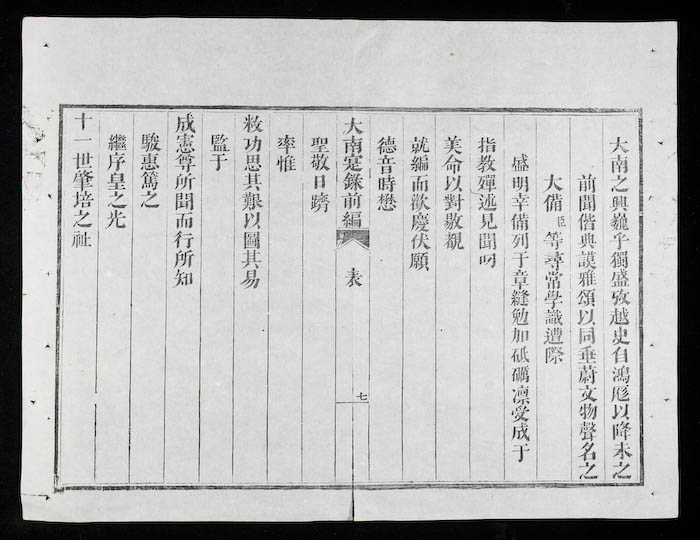 大南之興巍乎獨盛攷越史自鴻厖以降未之
前聞偕典謨雅頌以同垂蔚文物聲名之
大備臣等尋常學識遭際
盛明幸備列于章縫勉加砥礪凛受成于
指教殫述見聞明
美命以對敭覲
就編而歡慶伏願
德音時懋
大南寔錄前編 表 七
聖敬日躋
率惟
敉功思其艱以圖其易
監于
成憲尊所聞而行所知
駿惠篤之
繼序皇之光
十一世肇培之祉